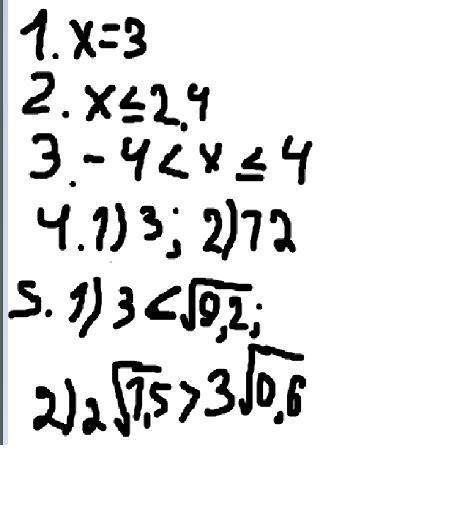 1. x=3
2. x≤2,4
3. -4<x≤4
4. 1) 3; 2) 72
5. 1) 3<√9,2;
2) 2√1,5>3√0,6